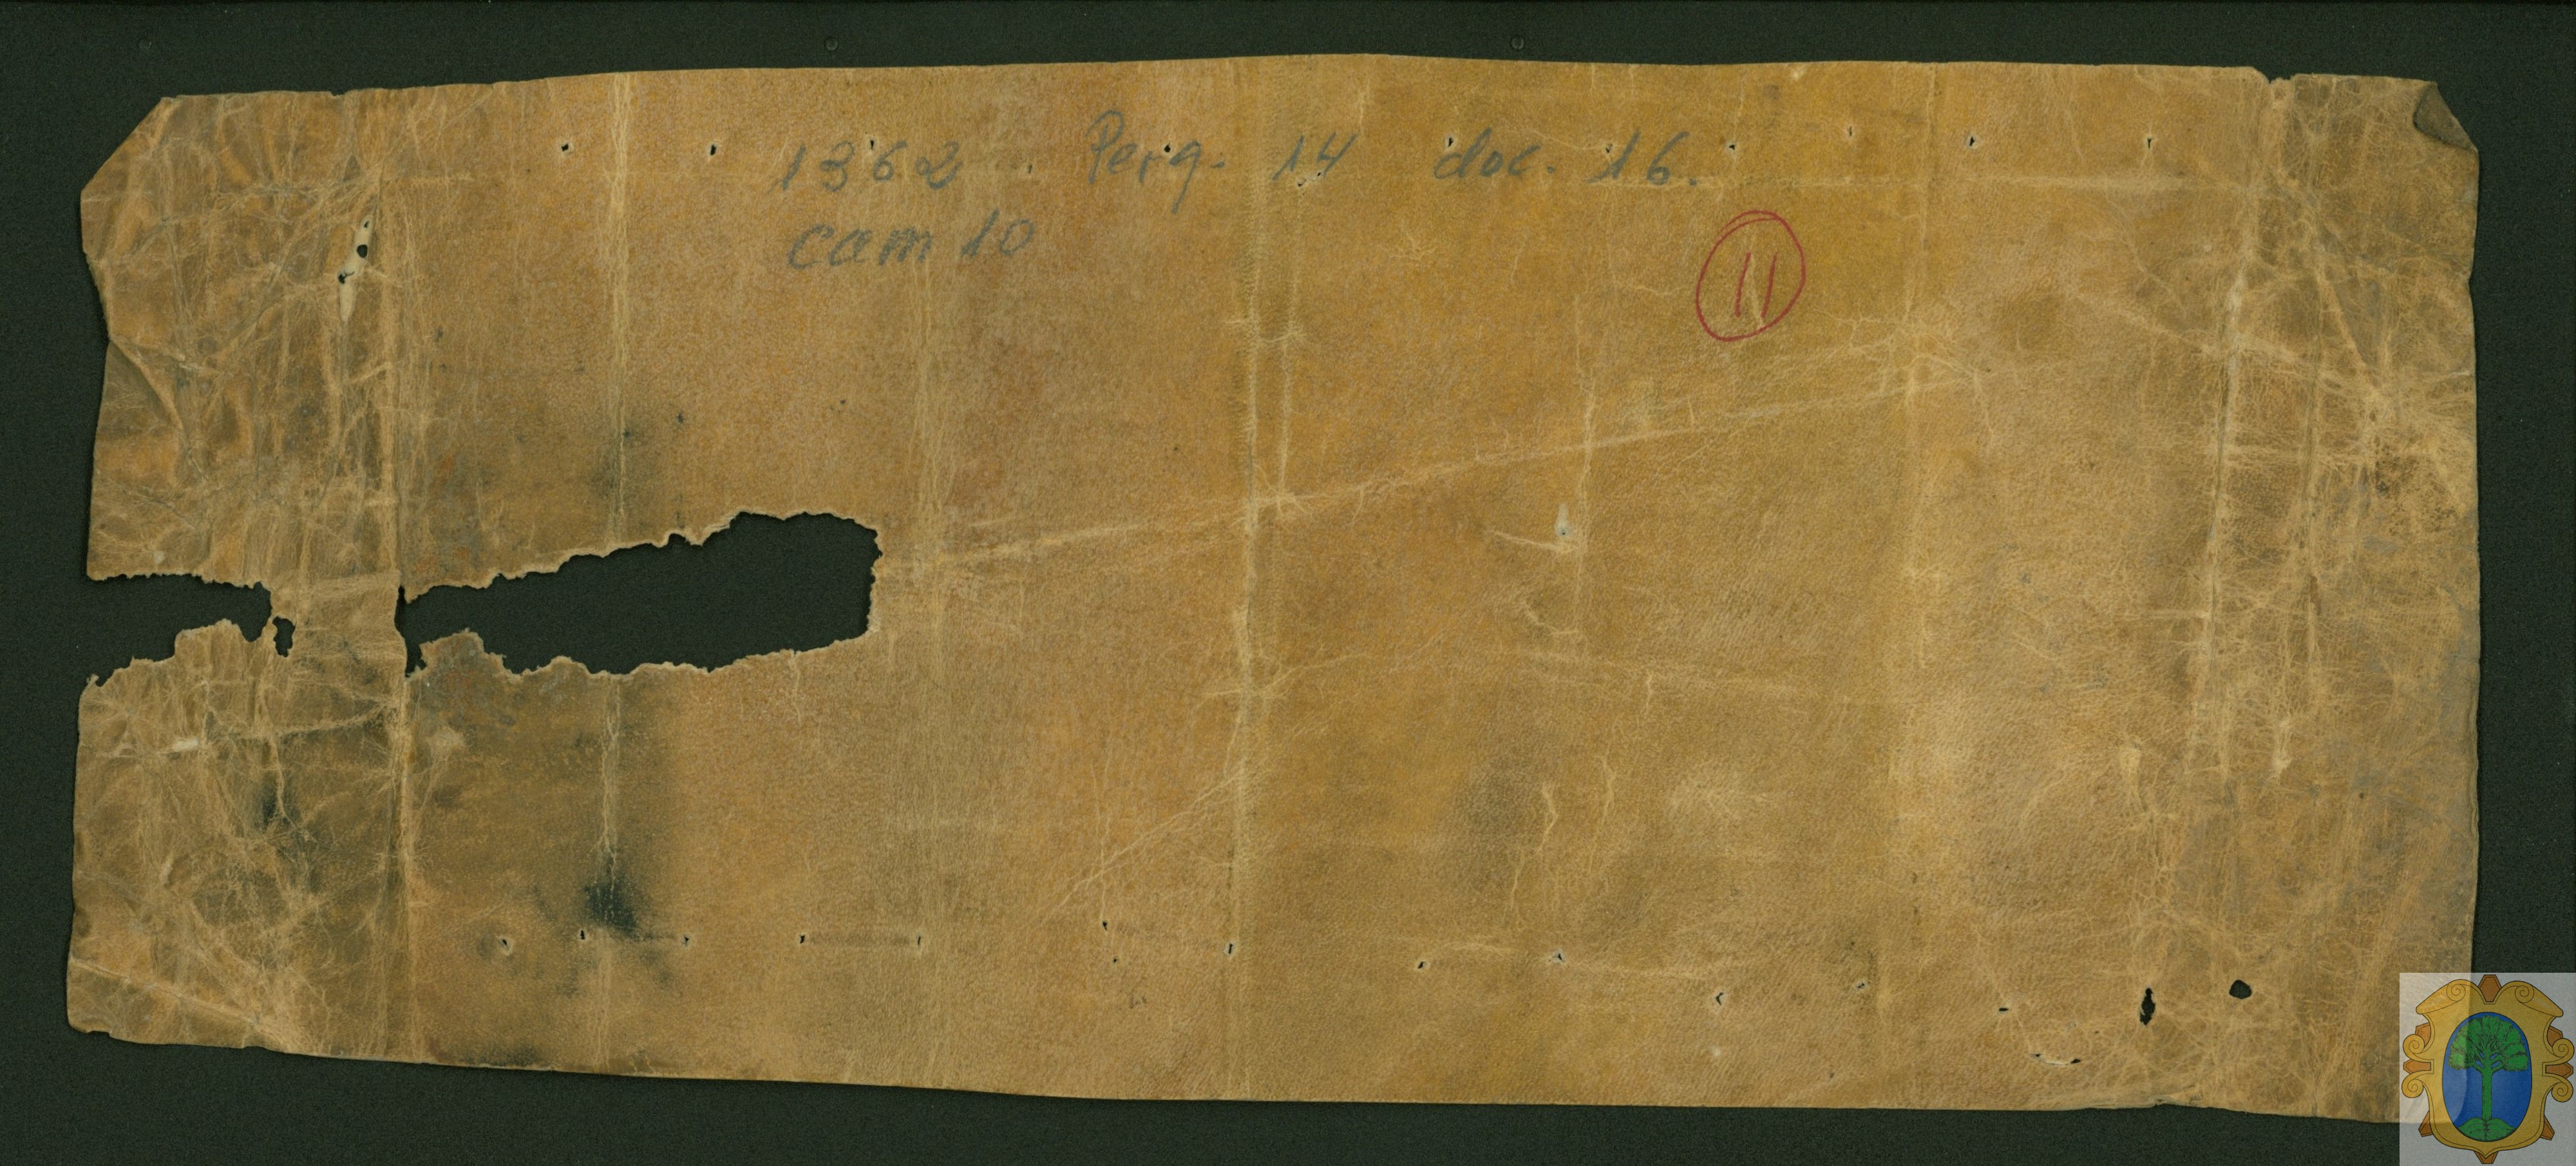 1362. Perg. 14 doc. 16.
cam 10
11